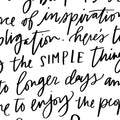 ce of inspiration
bligation. here's t
the SIMPLE thing
to longer days an
e to enjoy the peop